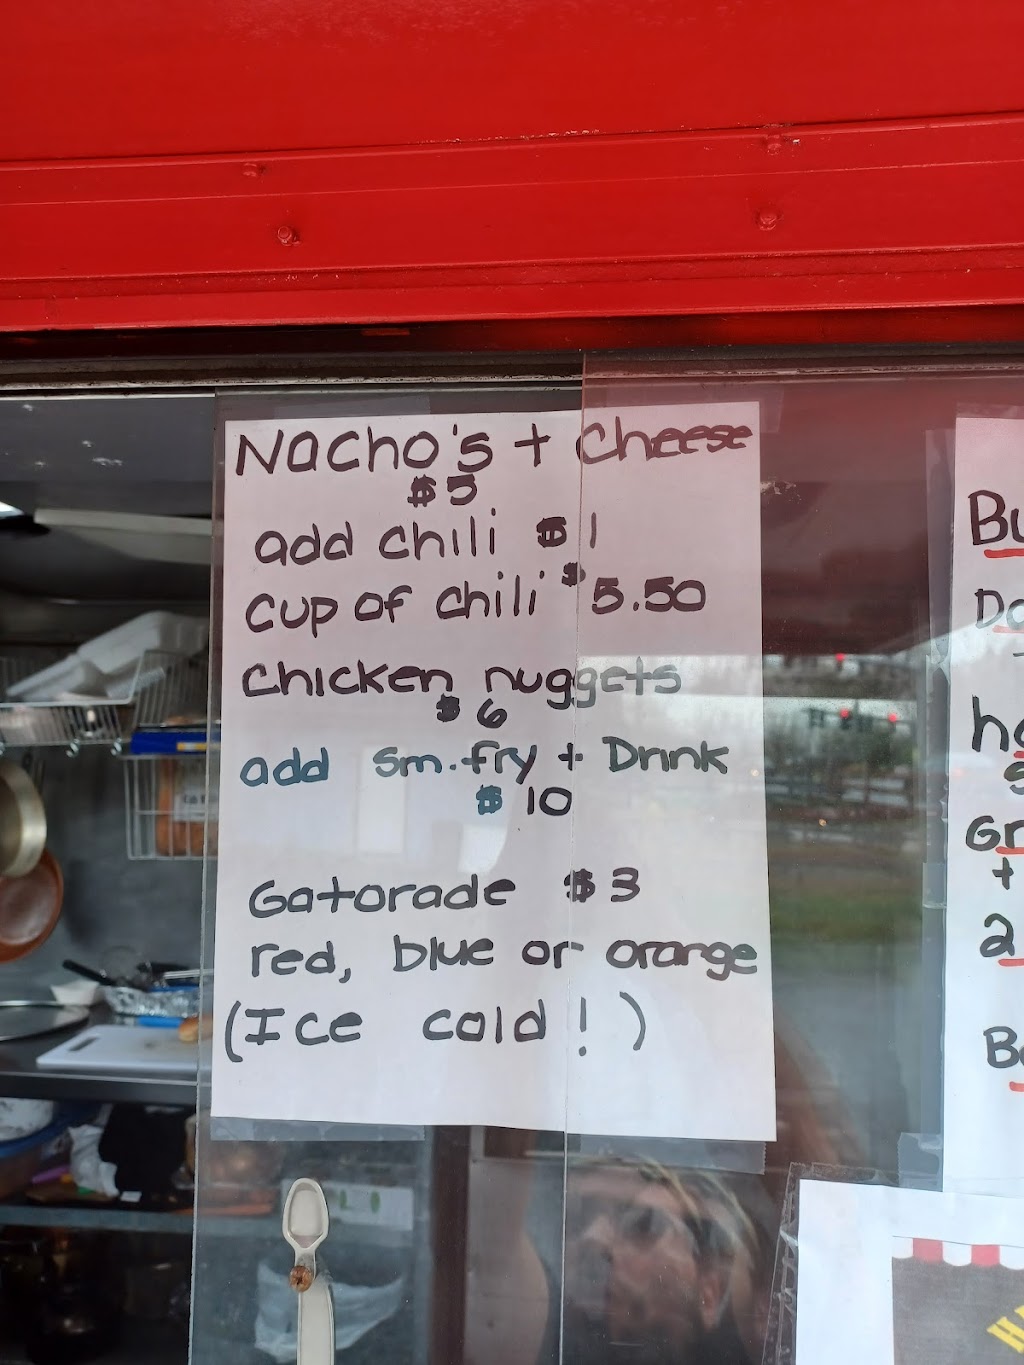 Nacho's + Cheese
$5
add chili $1
cup of chili $5.50
Chicken nuggets
$6
add sm. fry + Drink
$10
Gatorade $3
red, blue or orange
(Ice cold!)
Bu
Do
ho
s
Gr
+
2
B